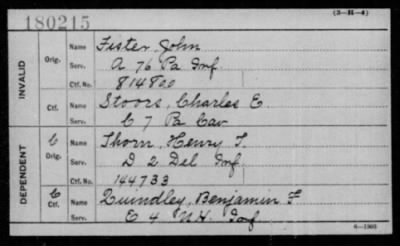 180215
(3—H—4)
INVALID
Orig.
Name Fister, John
Serv. A 76 Pa Inf.
Ctf. No. 814800
Ctf.
Name Stoors, Charles E.
Serv. C 7 Pa Cav
DEPENDENT
C
Orig.
Name Thorn, Henry T.
Serv. D 2 Del Inf.
Ctf. No. 144733
C
Ctf.
Name Quindley, Benjamin F
Serv. E 4 N.H. Inf
6—1903